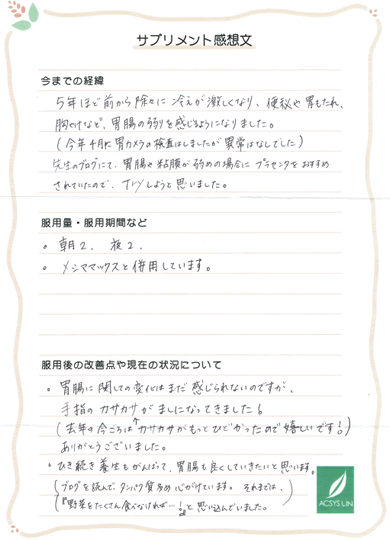 サプリメント感想文
今までの経緯
5年ほど前から徐々に冷えが激しくなり、便秘や胃もたれ、
胸やけなど、胃腸の弱りを感じるようになりました。
(今年4月に胃カメラの検査はしましたが異常はなしでした)
先生のブログにて、胃腸や粘膜が弱めの場合にプラセンタをおすすめ
されていたので、Tryしようと思いました。
服用量・服用期間など
。朝2、夜2.
。メシママックスと併用しています。
服用後の改善点や現在の状況について
。胃腸に関しての変化はまだ感じられないのですが、
手指のカサカサがましになってきました!
(去年の今ごろはカサカサがもっとひどかったので嬉しいです!)
ありがとうございました。
。ひき続き養生もがんばって、胃腸も良くしていきたいと思います。
(ブログを読んで、タンパク質多め心がけています。それまでは、
『野菜をたくさん食べなければ…!』と思い込んでいました。)
ACSYS LIN